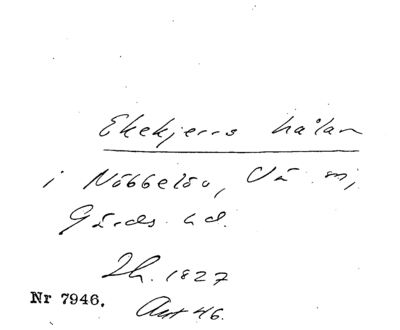 Ekekjerrs hålan
i Nöbbelöv, Vä sn,
Gärds hd.
Lh. 1827
Nr 7946. Akt 46.